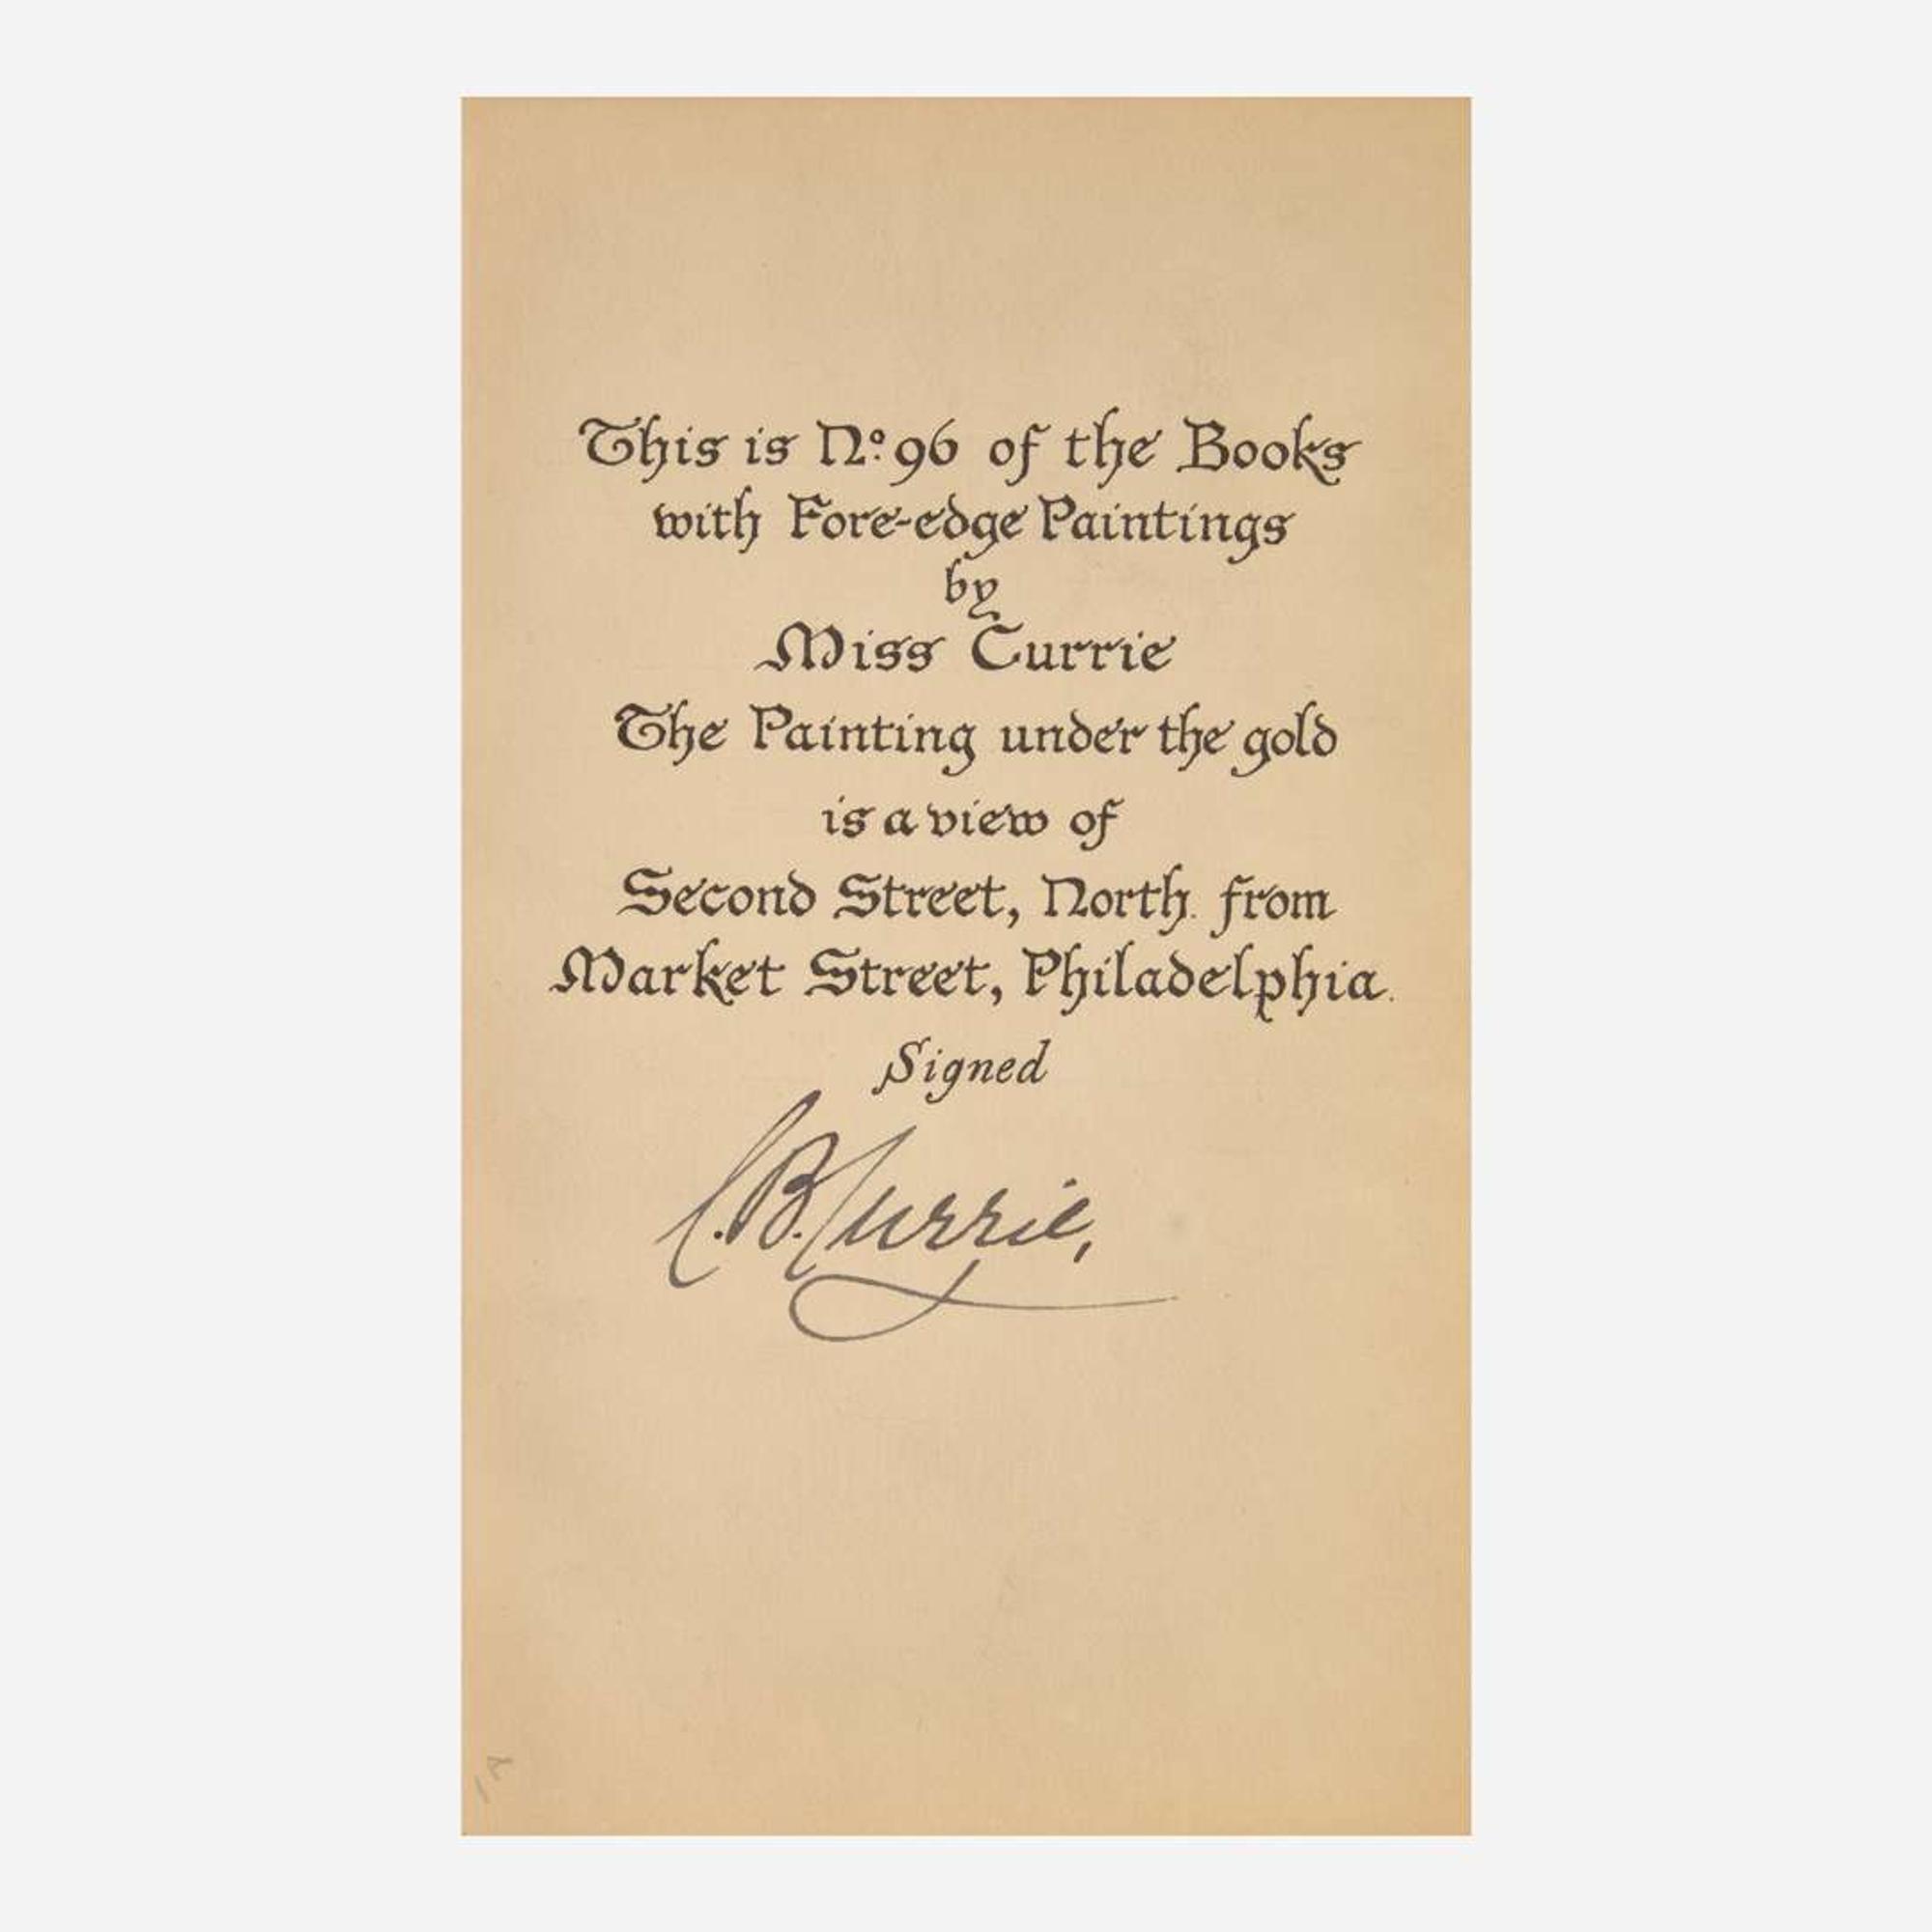 This is No. 96 of the Books
with Fore-edge Paintings
by
Miss Currie
The Painting under the gold
is a view of
Second Street, North. from
Market Street, Philadelphia.
Signed
C.B. Currie,